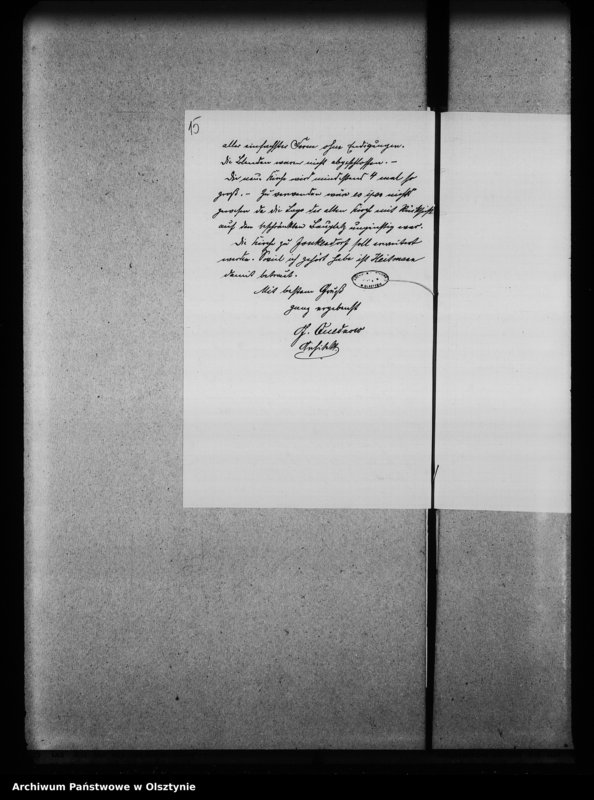 15
aller einfachster Form ohne Endigungen.
Die Blenden waren nicht abgeschlossen. –
Die neue Kirche wird mindestens 4 mal so
groß. – Zu verwenden wäre es nichts
gewesen da die Lage der alten Kirche mit
auf den beschränkten Bauplatz ungünstig war.
Die Kirche zu Jonkendorf soll erweitert
werden. Soviel ich gehört habe ist Heitmann
damit betraut.
Mit bestem Gruß
ganz ergebenst
Architekt
Archiwum Państwowe w Olsztynie